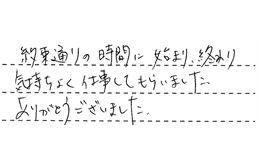 約束通りの時間に始まり、終わり
気持ちよく仕事してもらいました。
ありがとうございました。